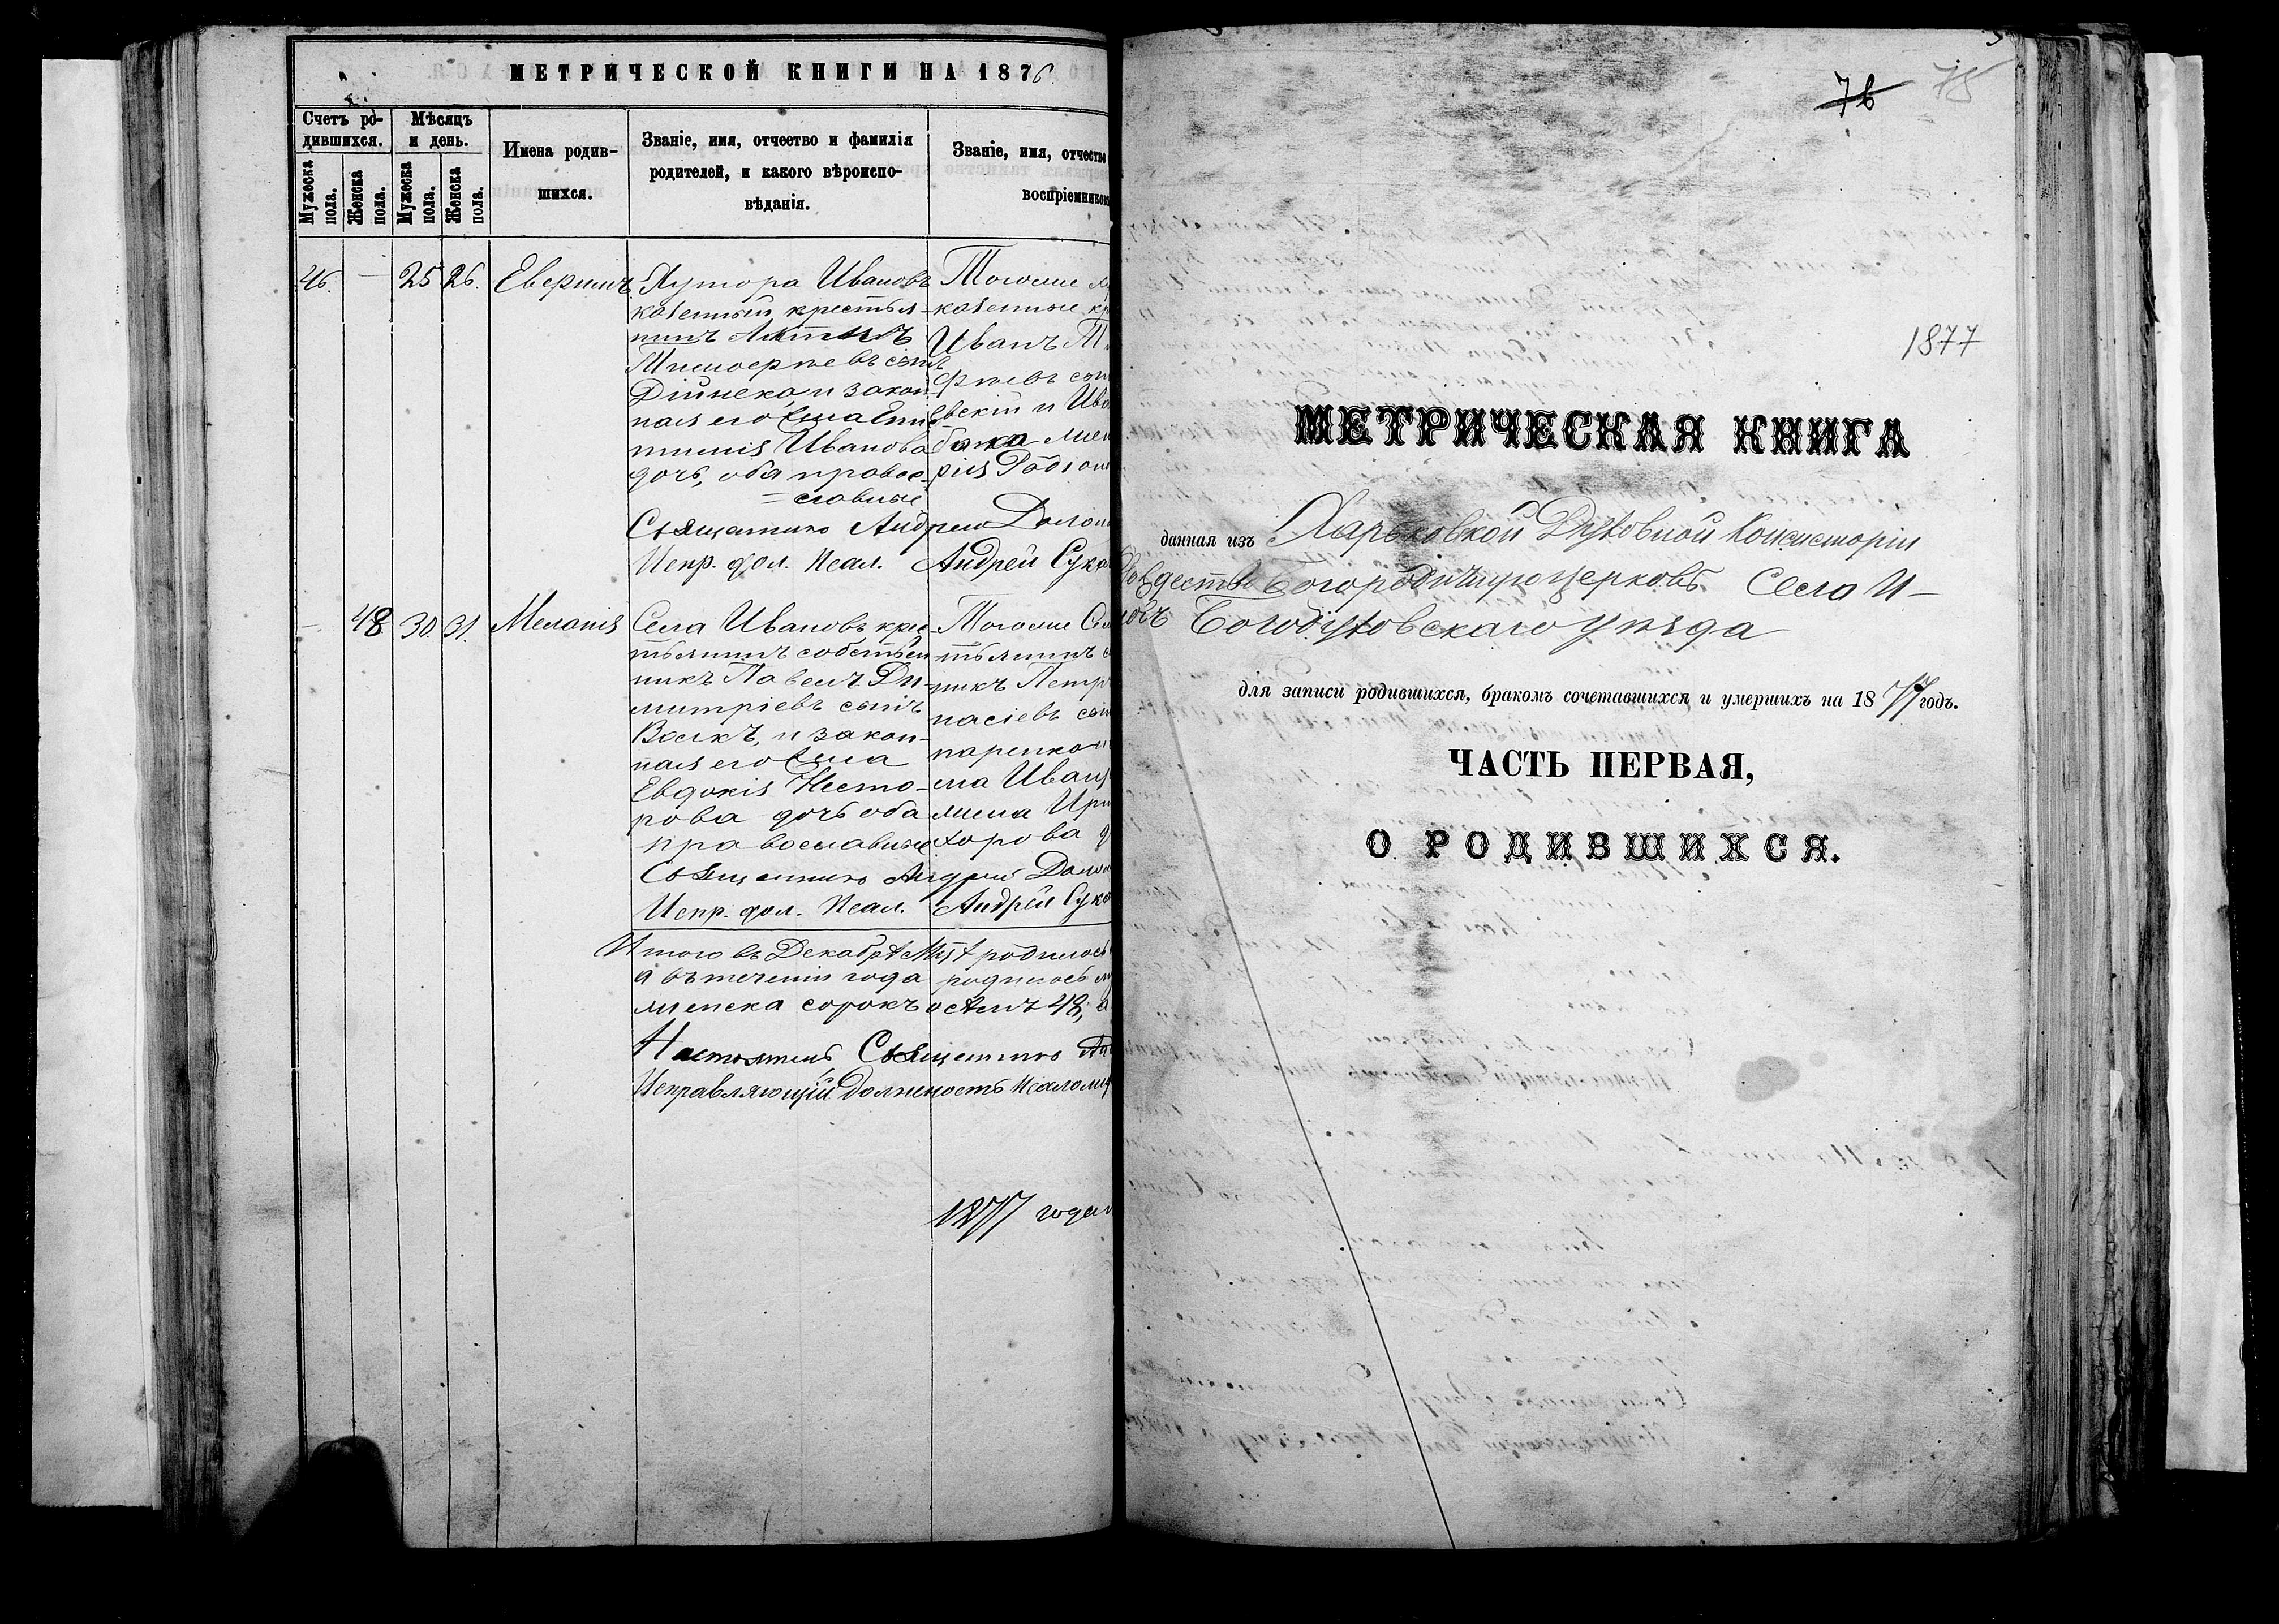 МЕТРИЧЕСКОЙ КНИГИ НА 1876
Счетъ ро-
дившихся.
Мужеска
пола.
Женска
пола.
Мѣсяцъ
и день.
Мужеска
пола.
Женска
пола.
Имена родив-
шихся.
Званіе, имя, отчество и фамилія
родителей, и какого вѣроиспо-
вѣданія.
Званіе, имя, отчество
воспріемниковъ
46. — 25 26.
Хутора Ивановъ
казенный крестья-
нинъ
Тимофеевъ сынъ
Дійнека и закон-
ная его жена
Иванова
дочь, оба правос-
=славные
Тогоже
казенные кр
Иванъ Т
феевъ сын
евскій и Ива
Священникъ Андрей
Испр. дол. Псал. Андрей Сука
— 48 30 31. Меланія
Села Ивановъ крес-
тьянинъ собствен
никъ Павелъ Ди-
митріевъ сынъ
Волкъ, и закон-
ная его жена
Евдокія Несто-
рова дочь оба
православные
Тогоже Се
тьянинъ с
никъ Петр
насіевъ сын
паренко и
ма Иван
жена Ири
хорова д
Священникъ Андрей
Испр. дол. Псал. Андрей Сука
Итого въ Декабрѣ М-цѣ родилось
а въ теченіи года родилось м
женска сорокъ осемъ 48, а
Настоятель, Священникъ Ан
Исправляющій Должность Псаломщ
1877 года
76 75
1877
МЕТРИЧЕСКАЯ КНИГА
данная изъ Харьковкой Духовной Консисторіи
Рождество Богородичную церковь Села И-
Богодуховскаго уѣзда
для записи родившихся, бракомъ сочетавшихся и умершихъ на 1877 годъ.
ЧАСТЬ ПЕРВАЯ,
О РОДИВШИХСЯ.